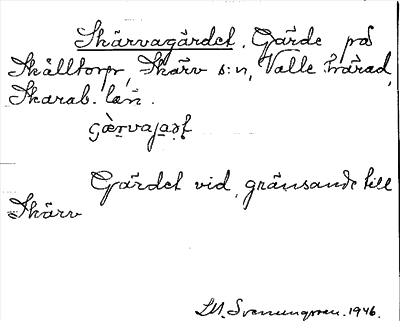 Skärvagärdet. Gärde på
Skälltorp, Skärv s:n, Valle härad,
Skarab. län.
Gärdet vid, gränsande till
Skärv
1946.